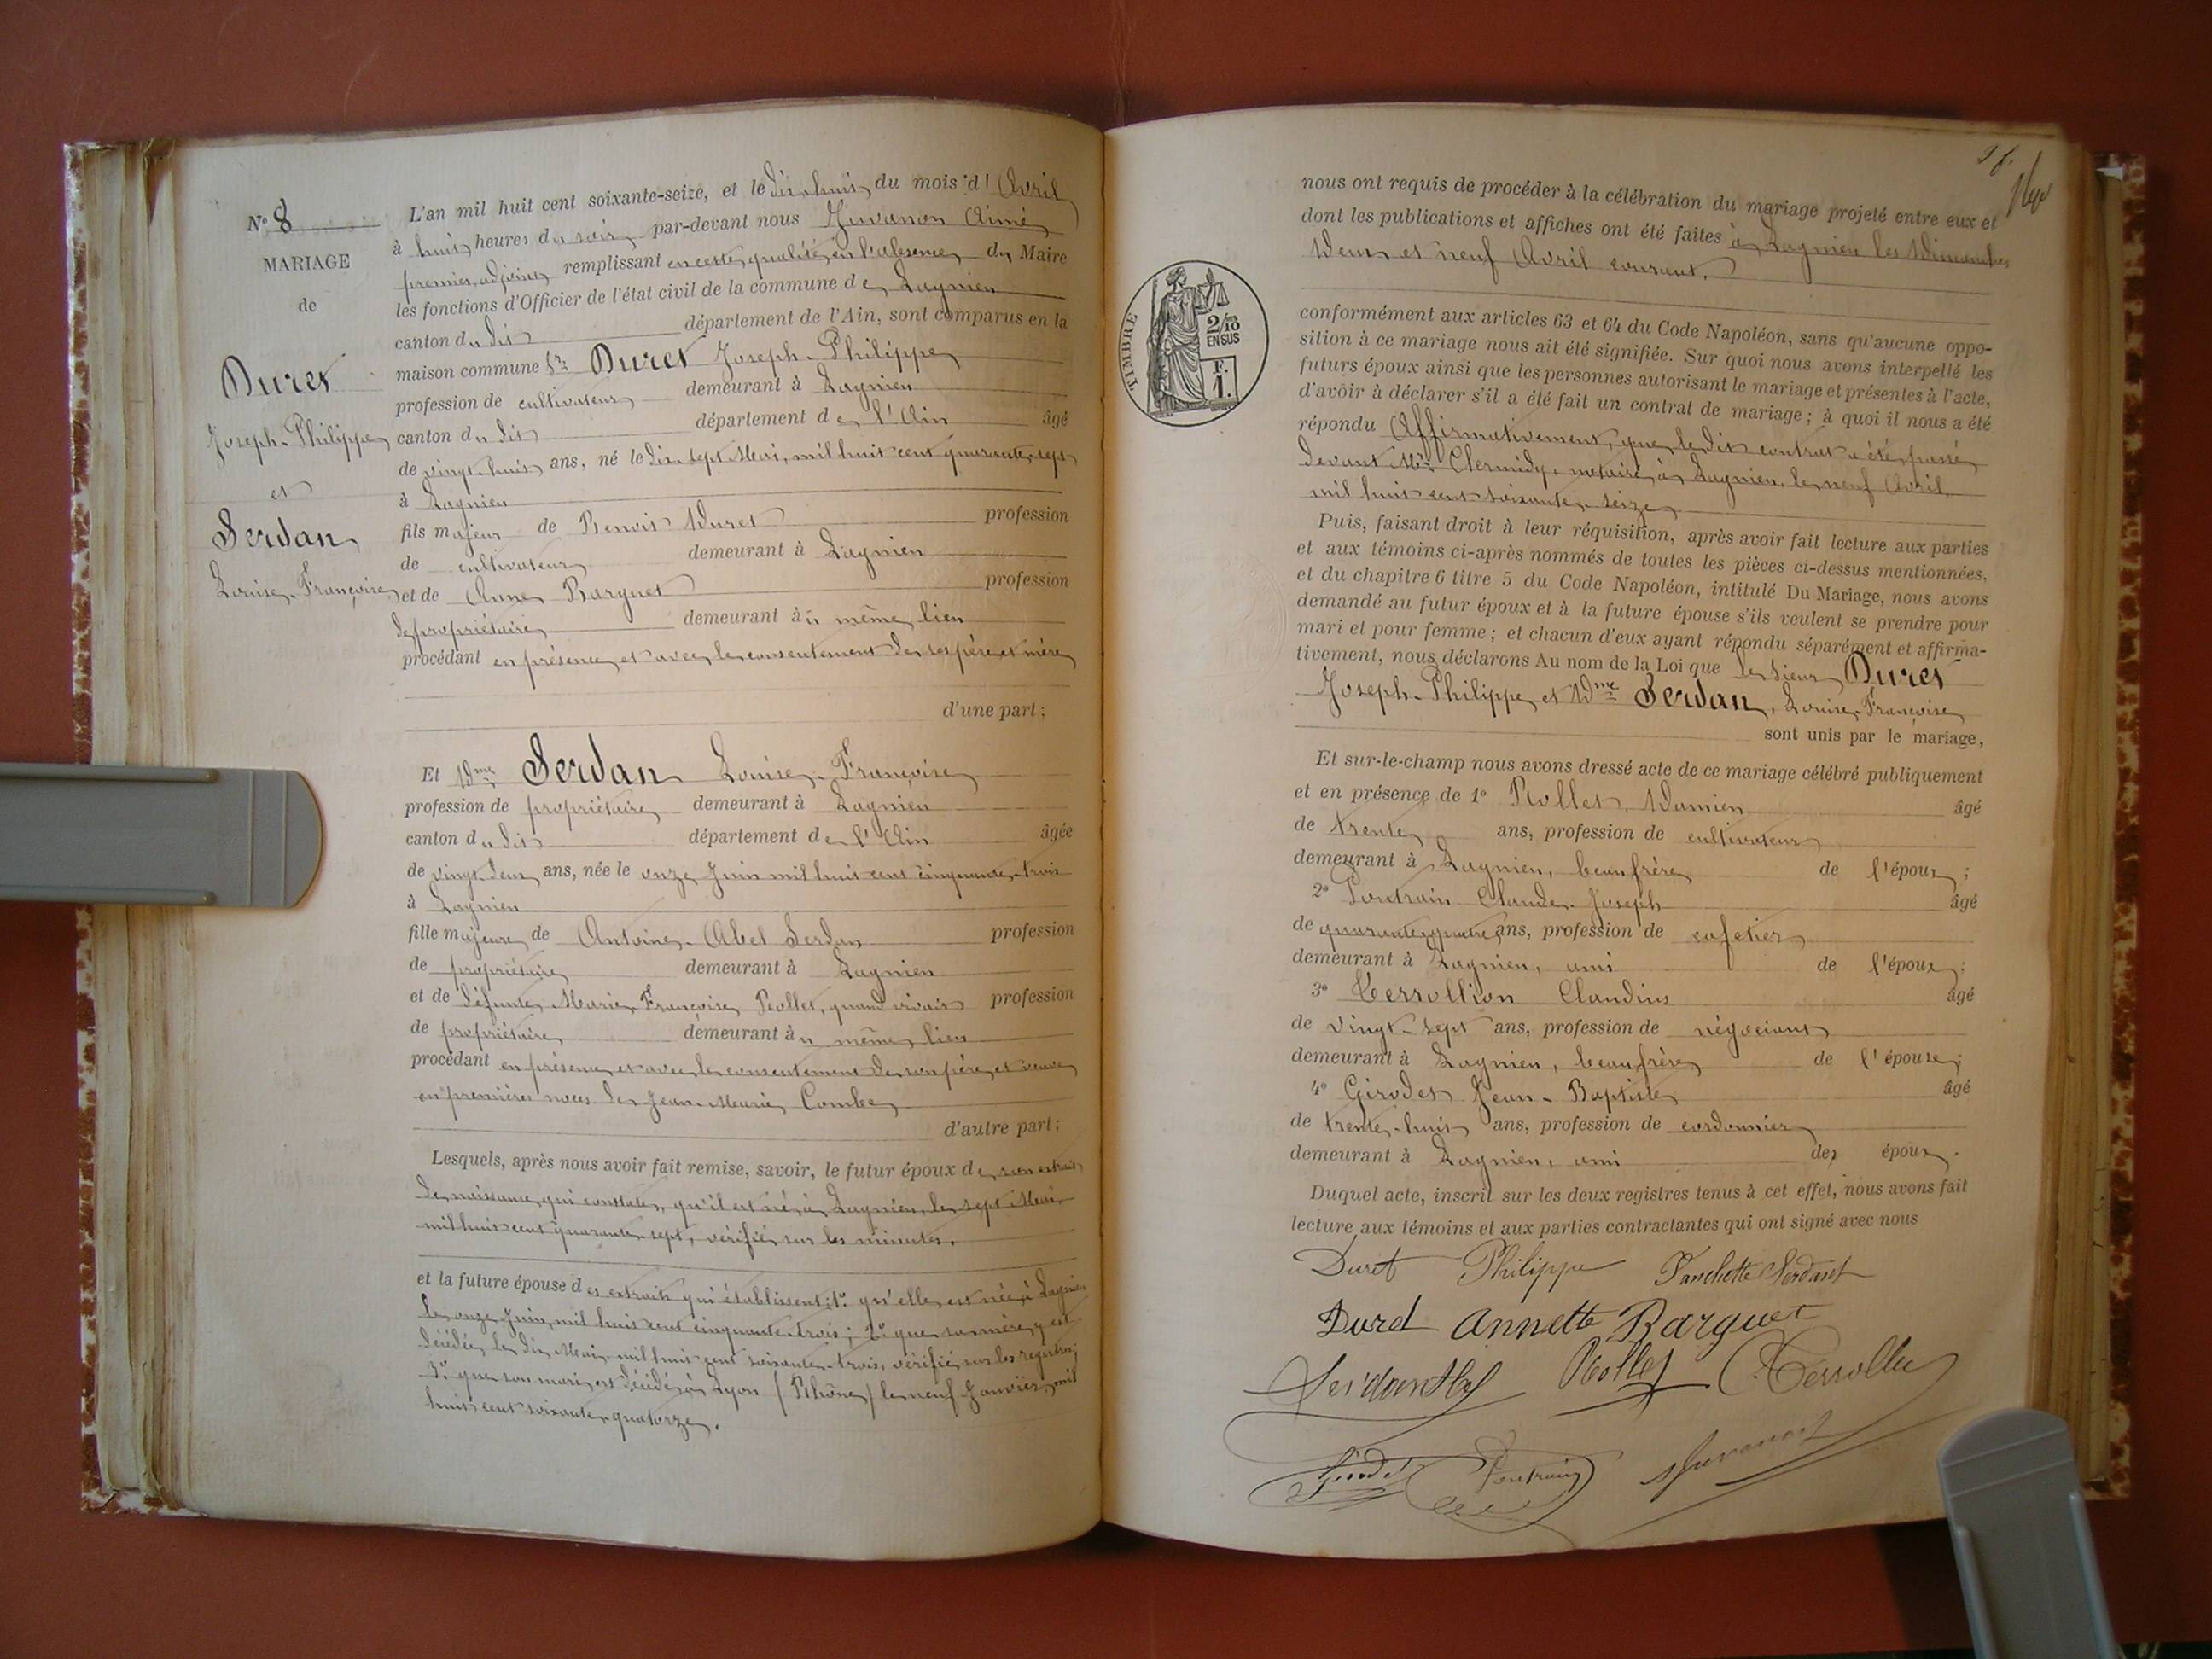 N° 8
MARIAGE
de
Duret
Joseph-Philippe
et
Serdan
Louise-Françoise
L'an mil huit cent soixante-seize, et le dix-huit du mois d'Avril
à huit heures du soir par-devant nous Juvanon Aimé
premier adjoint remplissant en cette qualité en l'absence du Maire
les fonctions d'Officier de l'état civil de la commune de Lagnieu
canton du dit département de l'Ain, sont comparus en la
maison commune Sr Duret Joseph-Philippe
profession de cultivateur demeurant à Lagnieu
canton du dit département de l'Ain âgé
de vingt-huit ans, né le dix-sept Mai, mil huit cent quarante-sept
à Lagnieu
fils majeur de Benoit Duret profession
de cultivateur demeurant à Lagnieu
et de Anne Barguet profession
de propriétaire demeurant au même lieu
procédant en présence et avec le consentement de ses père et mère
d'une part;
Et Dme Serdan Louise-Françoise
profession de propriétaire demeurant à Lagnieu
canton du dit département de l'Ain âgée
de vingt-deux ans, née le onze Juin mil huit cent cinquante-trois
à Lagnieu
fille majeure de Antoine-Abel Serdan profession
de propriétaire demeurant à Lagnieu
et de défunte Marie Françoise Rollet, quand vivait profession
de propriétaire demeurant au même lieu
procédant en présence et avec le consentement de son père, et veuve
en premières noces de Jean-Marie Combe
d'autre part;
Lesquels, après nous avoir fait remise, savoir, le futur époux de son extrait
de naissance qui constate, qu'il est né, à Lagnieu, le sept Mai
mil huit cent quarante-sept, vérifié sur les minutes.
et la future épouse des extraits qui établissent: 1° qu'elle est née à Lagnieu
le onze Juin, mil huit cent cinquante-trois; 2° que sa mère y est
décédée, le dix Mai, mil huit cent soixante-trois, vérifié sur les registres;
3° que son mari est décédé à Lyon (Rhône) le neuf Janvier, mil
huit cent soixante-quatorze.
nous ont requis de procéder à la célébration du mariage projeté entre eux et
dont les publications et affiches ont été faites à Lagnieu les Dimanches
Deux et neuf Avril courant.
TIMBRE
2/10
EN SUS
F.
1.
conformément aux articles 63 et 64 du Code Napoléon, sans qu'aucune oppo-
sition à ce mariage nous ait été signifiée. Sur quoi nous avons interpellé les
futurs époux ainsi que les personnes autorisant le mariage et présentes à l'acte,
d'avoir à déclarer s'il a été fait un contrat de mariage; à quoi il nous a été
répondu Affirmativement, que le dit contrat a été passé
devant Me Clermidy notaire à Lagnieu, le neuf Avril
mil huit cent soixante-seize
Puis, faisant droit à leur réquisition, après avoir fait lecture aux parties
et aux témoins ci-après nommés de toutes les pièces ci-dessus mentionnées,
et du chapitre 6 titre 5 du Code Napoléon, intitulé Du Mariage, nous avons
demandé au futur époux et à la future épouse s'ils veulent se prendre pour
mari et pour femme; et chacun d'eux ayant répondu séparément et affirma-
tivement, nous déclarons Au nom de la Loi que le Sieur Duret
Joseph-Philippe et Dme Serdan, Louise-Françoise
sont unis par le mariage,
Et sur-le-champ nous avons dressé acte de ce mariage célébré publiquement
et en présence de 1° Rollet, Damien âgé
de trente ans, profession de cultivateur
demeurant à Lagnieu, beau frère de l'époux;
2° Poutrain Claude-Joseph âgé
de quarante-quatre ans, profession de cafetier
demeurant à Lagnieu, ami de l'époux;
3° Terrollion Claudius âgé
de vingt-sept ans, profession de négociant
demeurant à Lagnieu, beau frère de l'épouse;
4° Girodet Jean-Baptiste âgé
de trente-huit ans, profession de cordonnier
demeurant à Lagnieu, ami des époux.
Duquel acte, inscrit sur les deux registres tenus à cet effet, nous avons fait
lecture aux témoins et aux parties contractantes qui ont signé avec nous
Duret Philippe Fanchette Serdant
Duret Annette Barguet
Rollet
Girodet Poutrain Juvanon